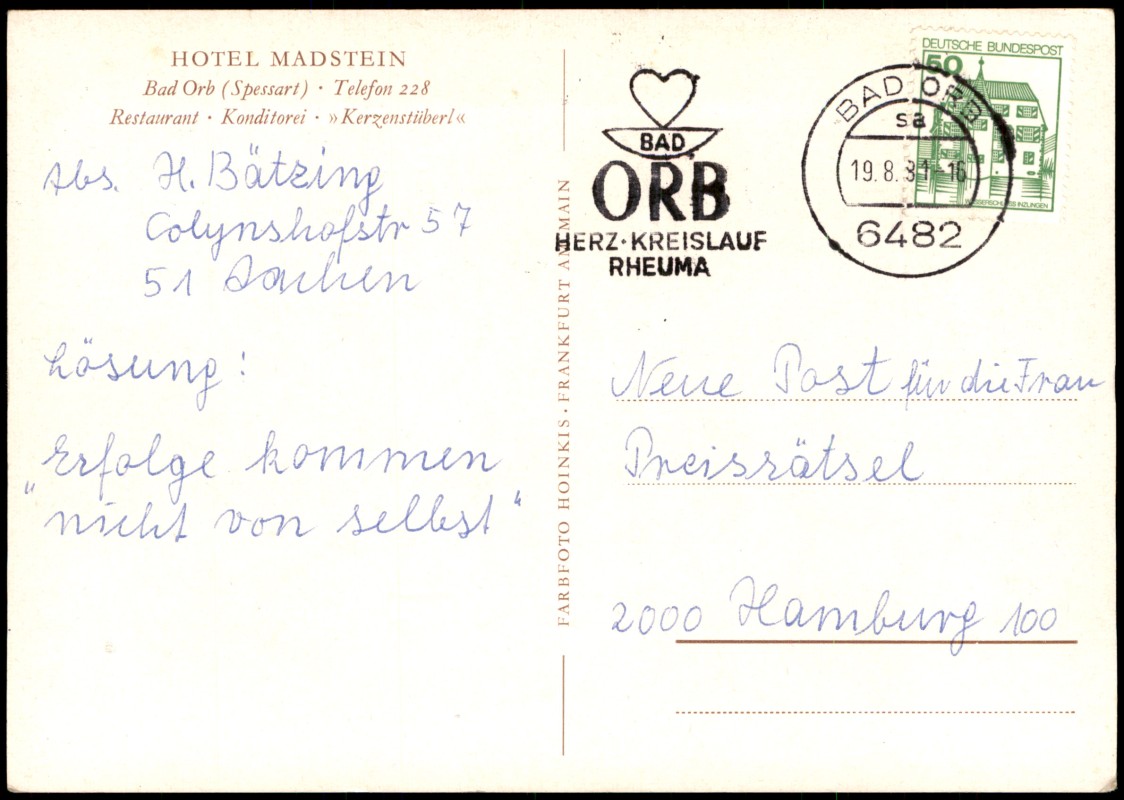 HOTEL MADSTEIN
Bad Orb (Spessart) · Telefon 228
Restaurant · Konditorei · »Kerzenstüberl«
Abs. H. Bätzing
Colynshofstr 57
51 Aachen
Lösung:
Erfolge kommen
"nicht von selbst"
FARBFOTO HOINKIS · FRANKFURT AM MAIN
BAD
ORB
HERZ·KREISLAUF
RHEUMA
BAD ORB
sa
19.8.81-16
6482
DEUTSCHE BUNDESPOST
50
WASSERSCHLOSS INZLINGEN
Neue Post für die Frau
Preisrätsel
2000 Hamburg 100